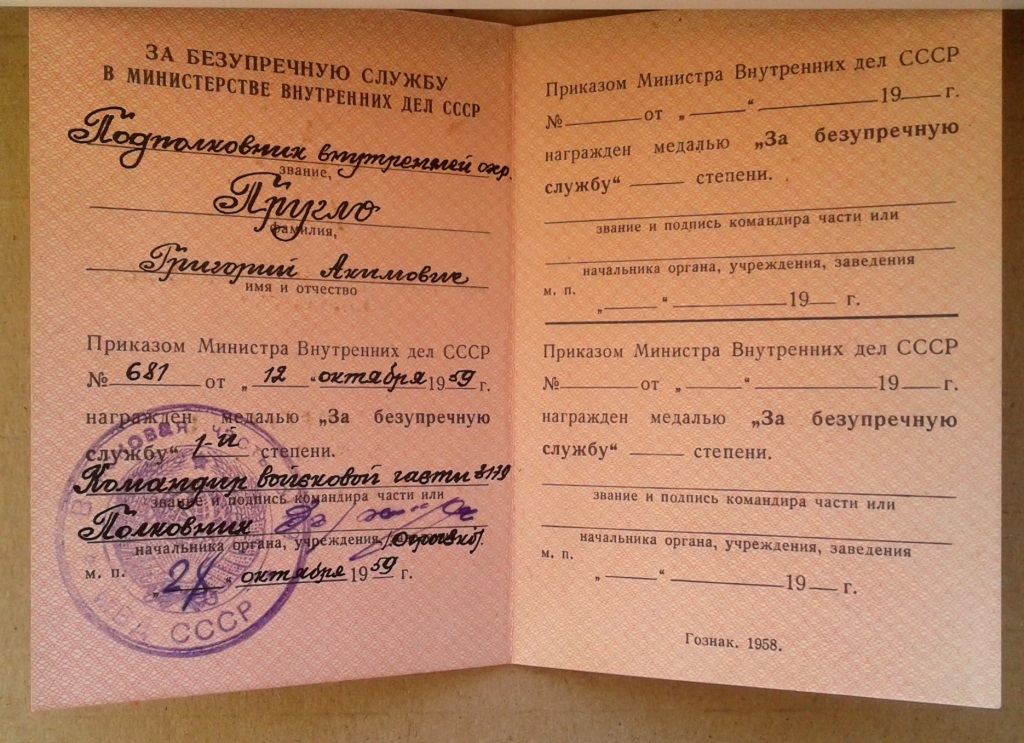 ЗА БЕЗУПРЕЧНУЮ СЛУЖБУ
В МИНИСТЕРСТВЕ ВНУТРЕННИХ ДЕЛ СССР
Подполковник внутренней охр.
звание,
Пругло
фамилия,
Григорий Акимович
имя и отчество
Приказом Министра Внутренних дел СССР
№ 681 от „12“ октября 1959 г.
награжден медалью „За безупречную
службу“ 1-й степени.
Командир войсковой части 8179
звание и подпись командира части или
Полковник
начальника органа, учреждения,
м. п. „28“ октября 1959 г.
МВД СССР
Приказом Министра Внутренних дел СССР
№ от „ “ 19 г.
награжден медалью „За безупречную
службу“ степени.
звание и подпись командира части или
начальника органа, учреждения, заведения
м. п. „ “ 19 г.
Приказом Министра Внутренних дел СССР
№ от „ “ 19 г.
награжден медалью „За безупречную
службу“ степени.
звание и подпись командира части или
начальника органа, учреждения, заведения
м. п. „ “ 19 г.
Гознак. 1958.